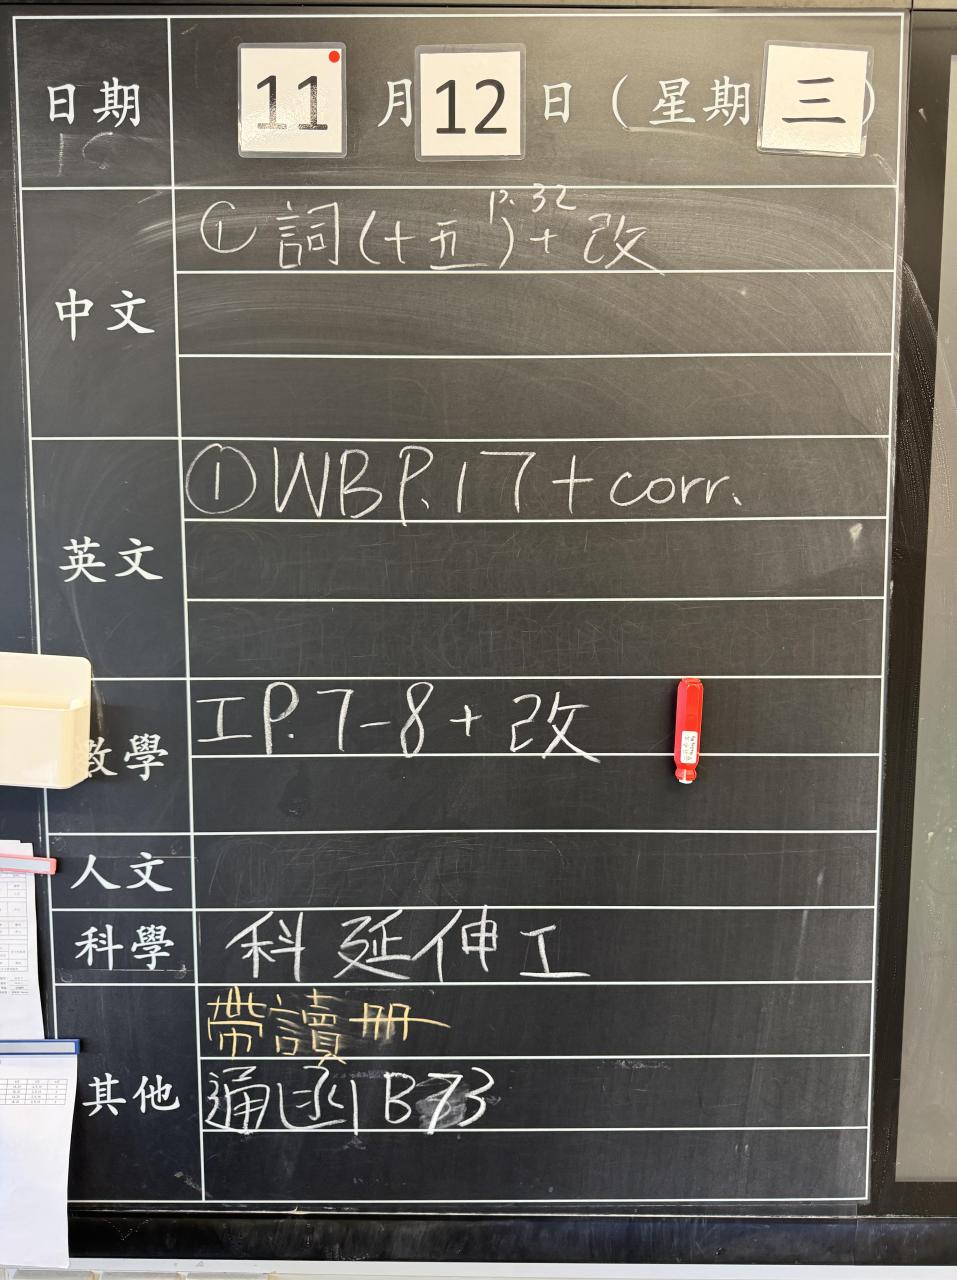 日期 11 月 12 日 (星期 三)
中文 ① 詞(十五)P.32 + 改
英文 ① WB P.17 + corr.
數學 工 P.7-8 + 改
人文
科學 科延伸工
其他 帶讀冊
通函 B73